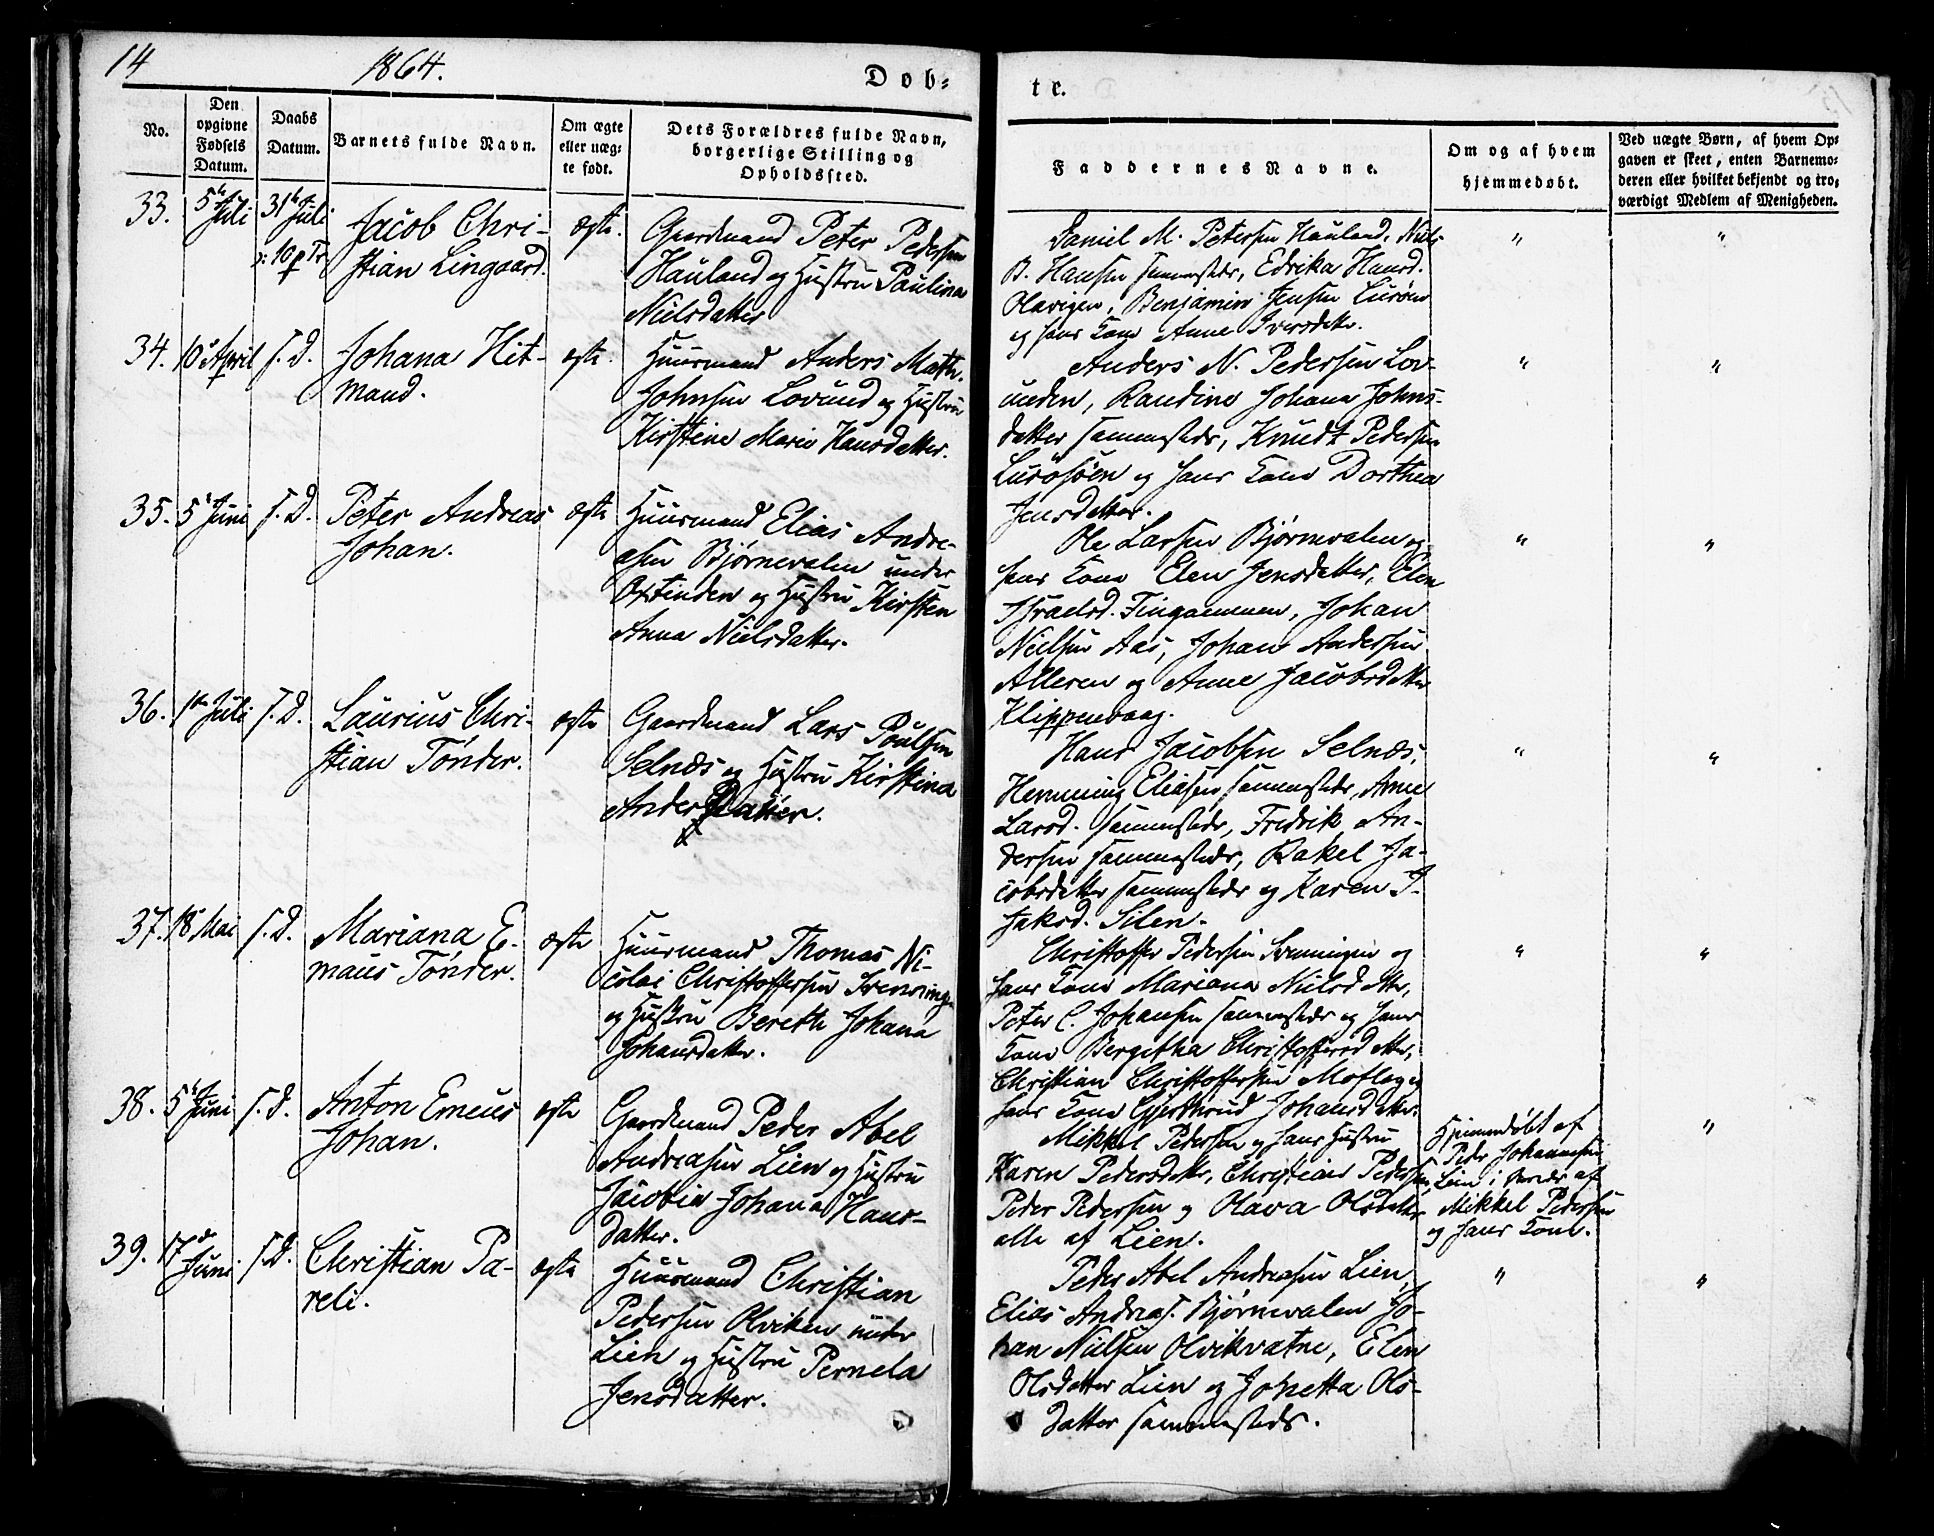 14
1864.
Dob=
te.
No.
Den opgivne Fødsels Datum.
Daabs Datum.
Barnets fulde Navn.
Om ægte eller uæg-te født.
Dets Forældres fulde Navn, borgerlige Stilling og Opholdssted.
Faddernes Navne.
Om og af hvem hjemmedøbt.
Ved uægte Børn, af hvem Op-gaven er skeet, enten Barnemo-deren eller hvilket bekjendt og tro-værdigt Medlem af Menigheden.
33.
5te Juli
31te Juli
ɔ: 10 p Tr.
Jacob Chri-
stian Lingaard.
ægte.
Gaardmand Peter Pedersen
Hauland og Hustru Paulina
Nielsdatter
Daniel M. Petersen Hauland, Niels
B. Hansen sammesteds, Edrika Hansd.
Olavigen, Benjamin Jensen Lurøen
og hans Kone Anne Iversdatter.
"
"
34.
10de April
s. D.
Johana Hit-
mand.
ægte.
Huusmand Anders Math.
Johnsen Lovund og Hustru
Kirstine Marie Hansdatter.
Anders N. Pedersen Lov-
unden, Randine Johana Johns-
datter sammesteds, Knudt Pedersen
Lurøsøen og hans Kone Dorthea
Jensdatter.
"
"
35.
5te Juni
s. D.
Peter Andreas
Johan.
ægte
Huusmand Elias Andre-
asen Bjørnevalen under
Oxtinden og Hustru Kirsten
Anna Nielsdatter.
Ole Larsen Bjørnevalen og
hans Kone Elen Jensdatter, Elen
Israelsd. Tingammen, Johan
Nielsen Aas, Johan Andersen
Alleren og Anne Jacobsdatter
Klippenvaag.
"
"
36.
1ste Juli
s. D.
Laurius Chri-
stian Tønder.
ægte
Gaardmand Lars Poulsen
Selnæs og Hustru Kirstina
Andersdatter.
Hans Jacobsen Selnæs,
Hemming Eliasen sammesteds, Anne
Larsd. sammesteds, Fredrik An-
dersen sammesteds, Rakel Ja-
cobsdatter sammesteds og Karen J.
Jaksd. Silen.
"
"
37.
18de Mai
s. D.
Mariana E-
maus Tønder.
ægte
Huusmand Thomas Ni-
colai Christoffersen Svenning.
og Hustru Bereth Johana
Johansdatter.
Christoffer Pedersen Svenningen og
hans Kone Mariana Nielsdatter,
Peter C. Johansen sammesteds og hans
Kone Bergitha Christoffersdatter,
Christian Christoffersen Moflag og
hans Kone Gjerthrud Johansdatter.
"
"
38.
5te Juni
s. D.
Anton Emeus
Johan.
ægte
Gaardmand Peder Abel
Andreasen Lien og Hustru
Jacobin Johana Hans-
datter.
Mikkel Pedersen og hans Hustru
Karen Pedersdatter, Christian Pedersen,
Peder Pedersen og Olava Olsdatter
alle af Lien.
Hjemmedøbt af
Peder Johannesen
Lien i Nærvær af
Mikkel Pedersen
og hans Kone.
"
39.
17de Juni
s. D.
Christian Pa-
reli.
ægte
Huusmand Christian
Pedersen Olviken under
Lien og Hustru Pernela
Jensdatter.
Peder Abel Andreasen Lien,
Elias Andreas. Bjørnevalen Jo-
han Nielsen Olvikvatne, Elen
Olsdatter Lien og Johetta Ols-
datter sammesteds.
"
"